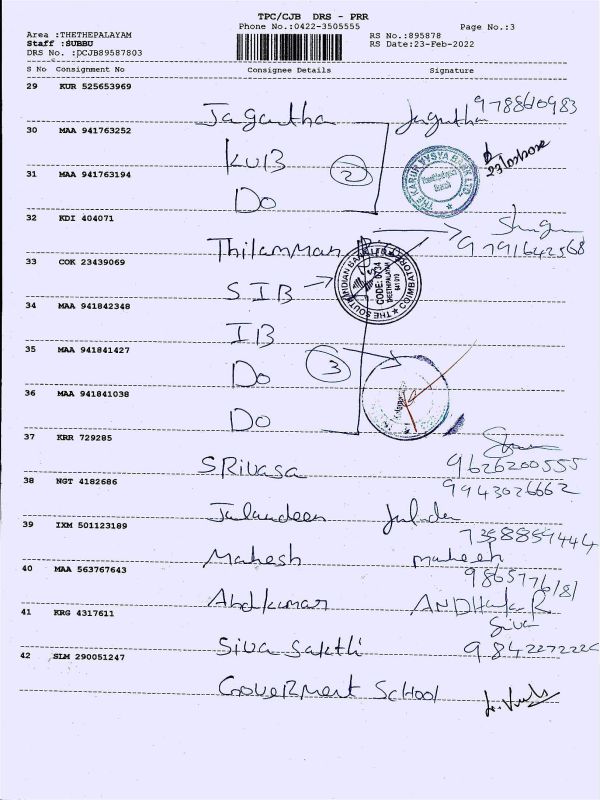 TPC/CJB DRS - PRR
Phone No.:0422-3505555
Page No.:3
Area :THETHEPALAYAM
RS No.:895878
Staff :SUBBU
RS Date:23-Feb-2022
DRS No. :PCJB89587803
S No Consignment No Consignee Details Signature
29 KUR 525653969
Jagantha
9788610983
30 MAA 941763252
KUB
2
31 MAA 941763194
Do
THE KARUR VYSYA BANK LTD.
32 KDI 404071
Thilamman
9791642568
33 COK 23439069
SIB
THE SOUTH INDIAN BANK LTD
COIMBATORE
CODE: 0734
34 MAA 941842348
IB
35 MAA 941841427
Do
3
36 MAA 941841038
Do
37 KRR 729285
SRivasa
9626200555
38 NGT 4182686
9943026662
39 IXM 501123189
7358859444
Mahesh
40 MAA 563767643
Abdkumar
41 KRG 4317611
Siva
Siva Sakthi
42 SLM 290051247
GOVERMENT SCHOOL